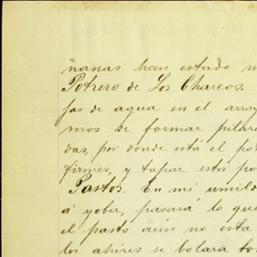 ñanas han estado m
Potrero de Los Charcos.
jas de agua en el arroy
mos de formar pilare
das, por donde está el po
firmes, y tapar esta po
Pastos. En mi umild
á yober, pasará lo que
el pasto aun no esta
los ahires se bolara to